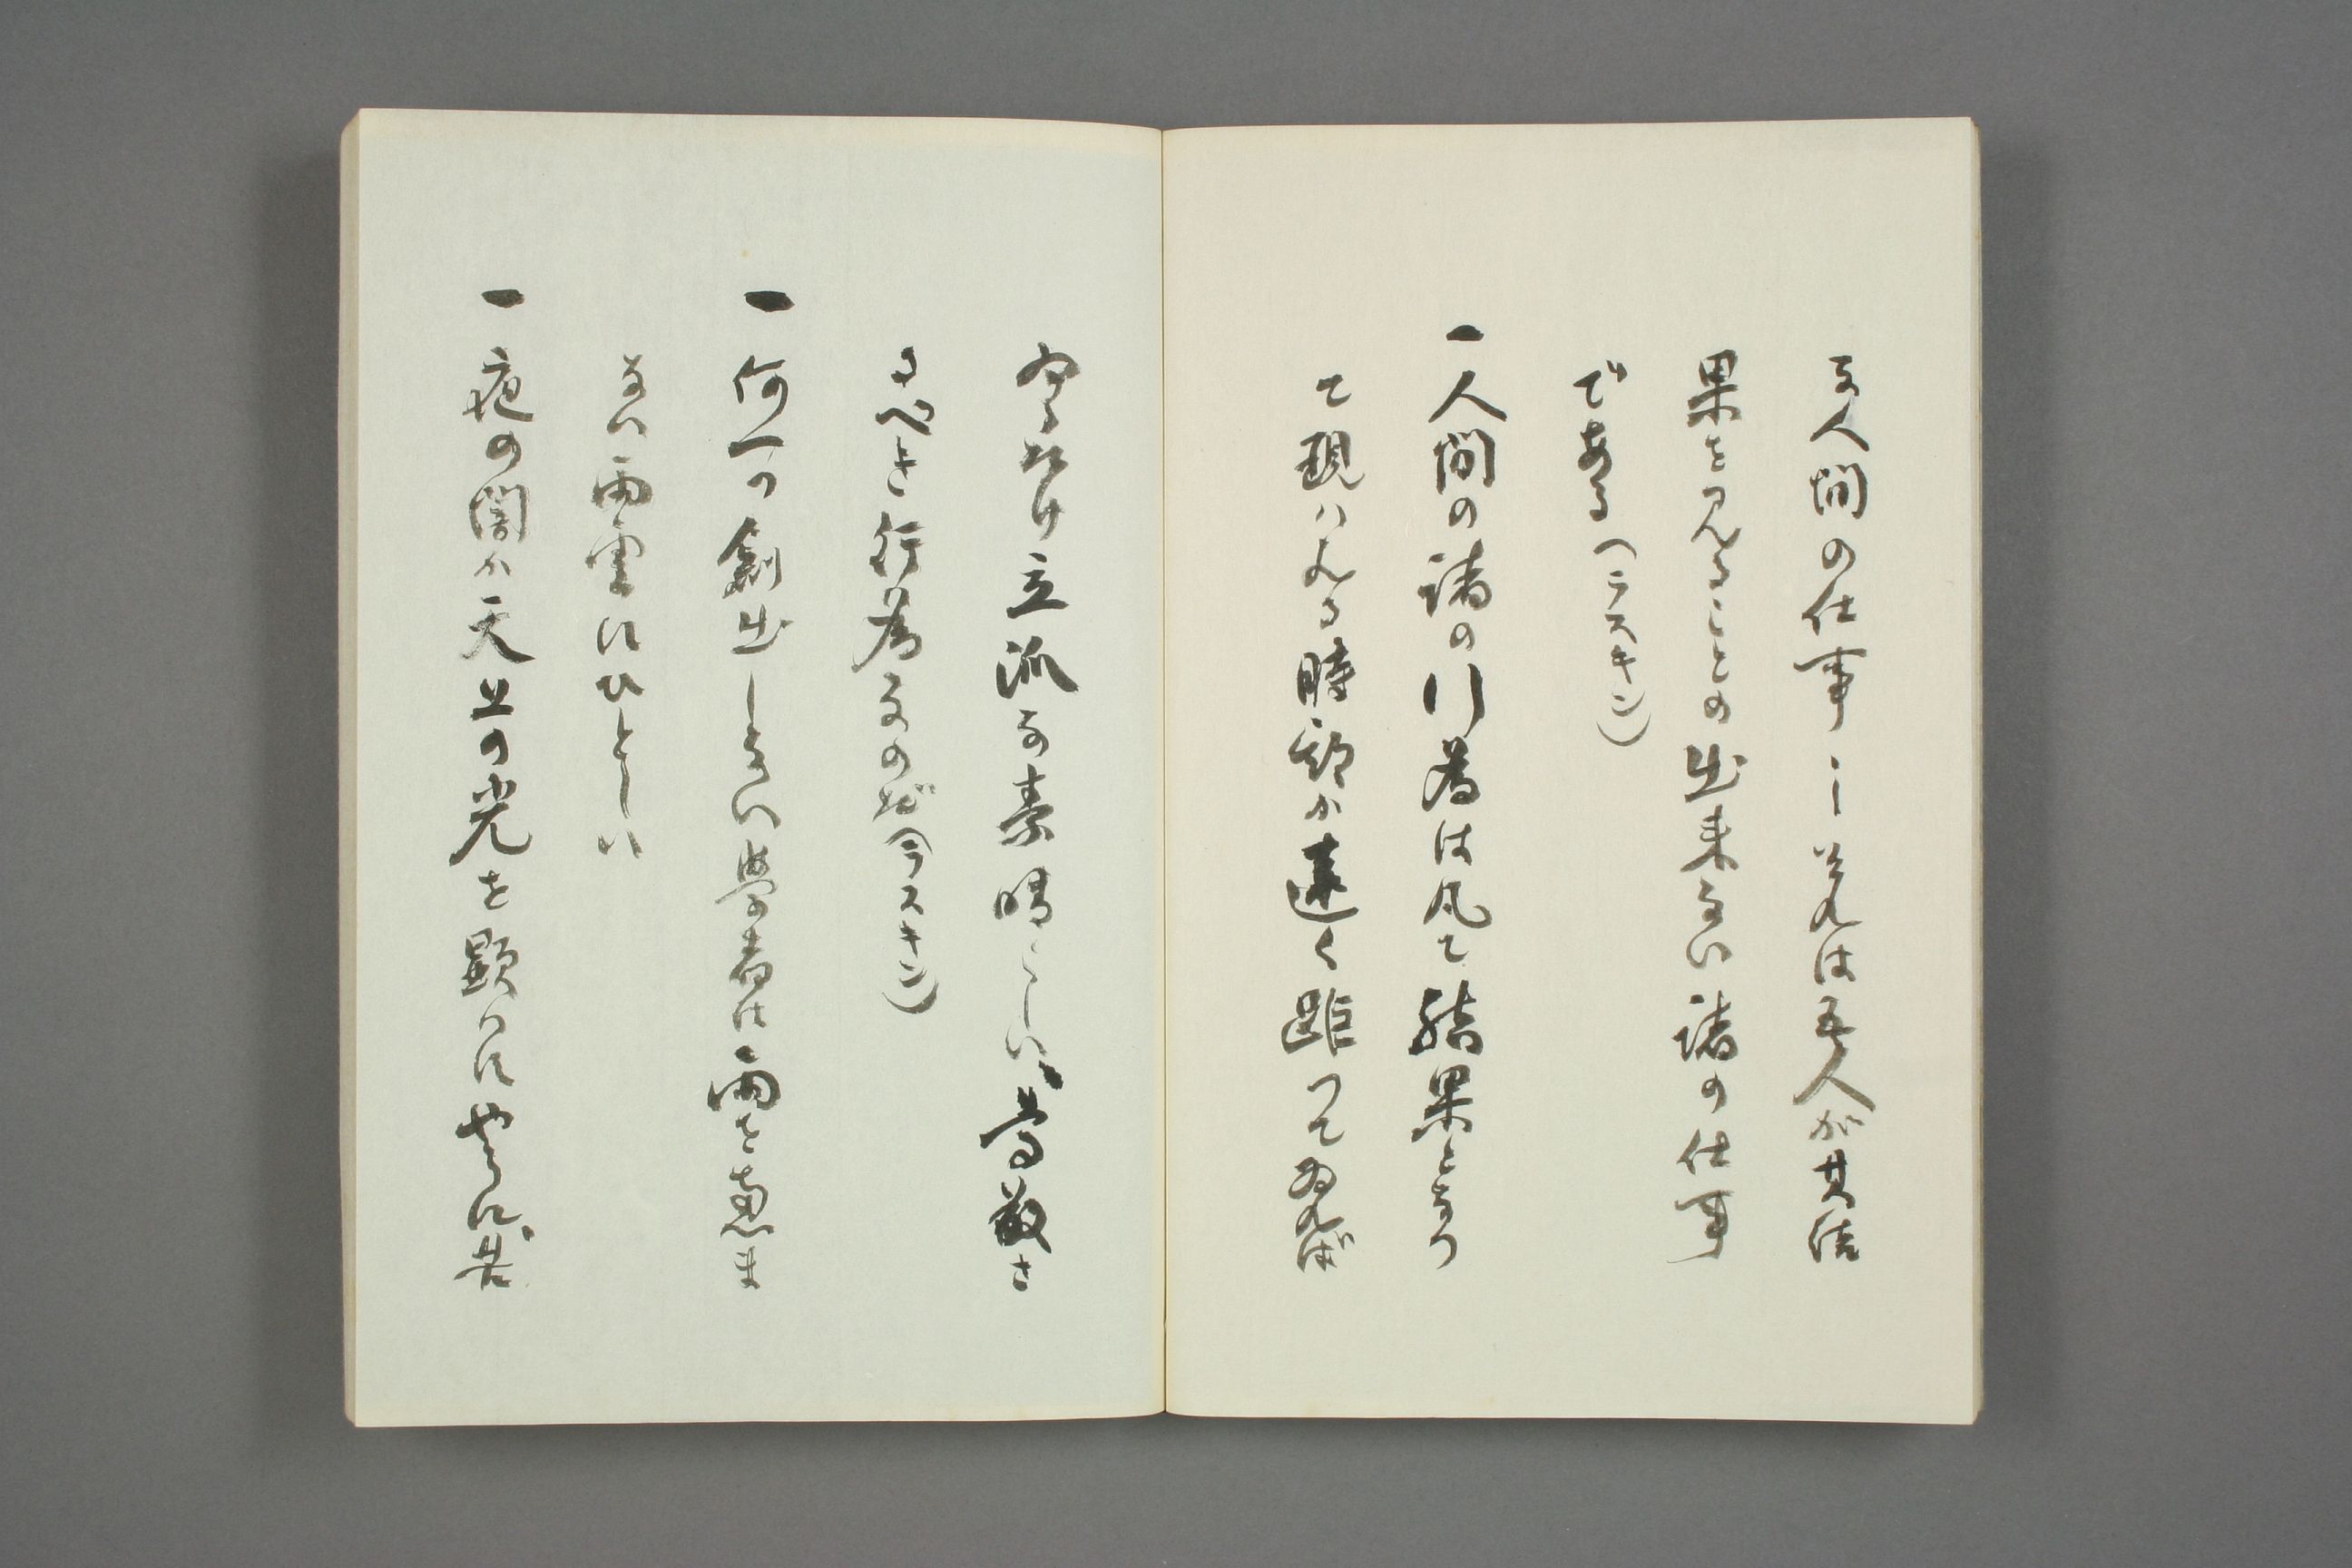 る人間の仕事――それは吾人が其結
果を見ることの出来ない諸の仕事
である(ラスキン)
一人間の諸の行為は凡て結果となつ
て現ハれる時期か遠く距つてゐれば
ゐるだけ立派な素晴らしい尊敬さ
るべき行為なのだ(ラスキン)
一 何一つ創出しない学者は雨を恵ま
ない雨雲にひとしい
一 夜の闇か天上の光を顕ハにするやうに